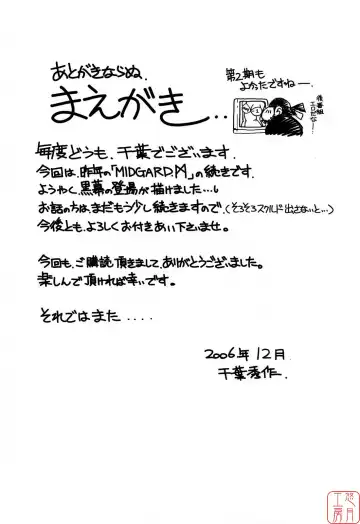 あとがきならぬ、
まえがき..
第2期も
よかったですねー.
後番組
毎度どうも、千葉でございます.
今回は、昨年の「MIDGARD M」の続きです.
ようやく、黒幕の登場が描けました...
お話の方は、まだもう少し続きますので、(そろそろスクルド出さないと...)
今後とも、よろしくお付きあい下さいませ.
今回も、ご購読頂きまして、ありがとうございました。
楽しんで頂ければ幸いです。
それではまた....
2006年12月
千葉秀作.